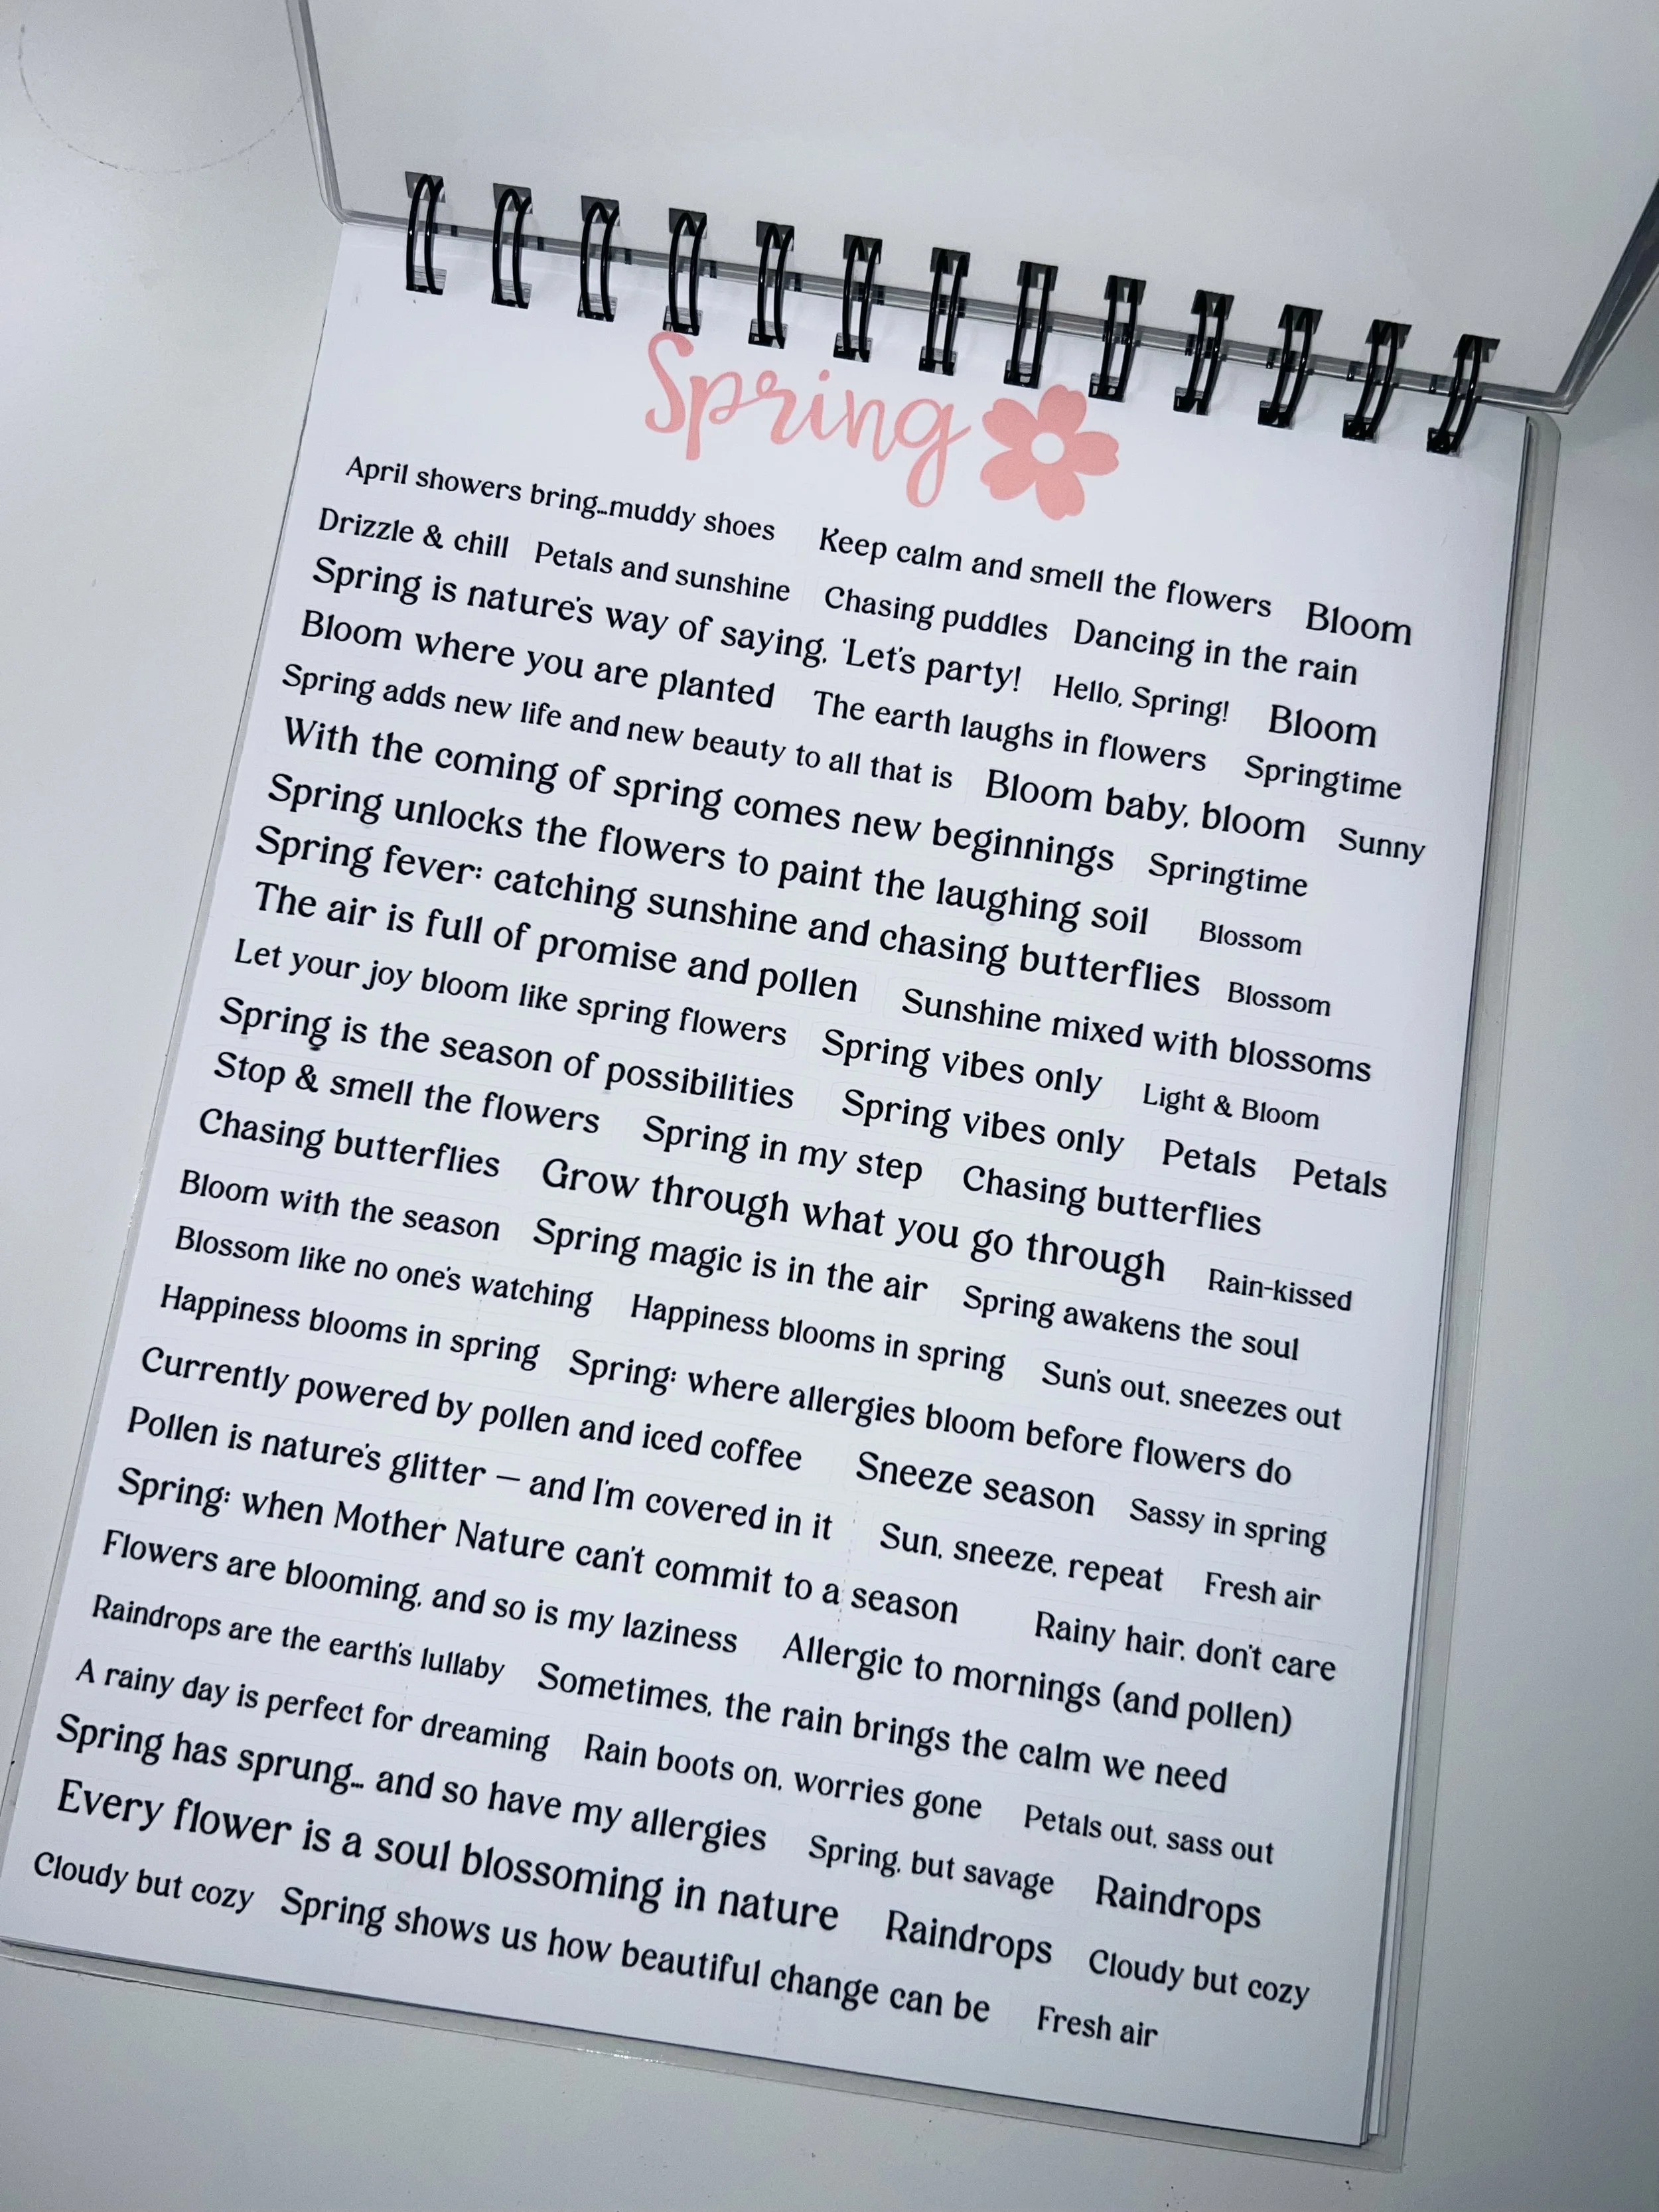 Spring
April showers bring...muddy shoes Keep calm and smell the flowers Bloom
Drizzle & chill Petals and sunshine Chasing puddles Dancing in the rain
Spring is nature's way of saying, 'Let's party! Hello, Spring! Bloom
Bloom where you are planted The earth laughs in flowers Springtime
Spring adds new life and new beauty to all that is Bloom baby, bloom Sunny
With the coming of spring comes new beginnings Springtime
Spring unlocks the flowers to paint the laughing soil Blossom
Spring fever: catching sunshine and chasing butterflies Blossom
The air is full of promise and pollen Sunshine mixed with blossoms
Let your joy bloom like spring flowers Spring vibes only Light & Bloom
Spring is the season of possibilities Spring vibes only Petals Petals
Stop & smell the flowers Spring in my step Chasing butterflies
Chasing butterflies Grow through what you go through Rain-kissed
Bloom with the season Spring magic is in the air Spring awakens the soul
Blossom like no one's watching Happiness blooms in spring Sun's out, sneezes out
Happiness blooms in spring Spring: where allergies bloom before flowers do
Currently powered by pollen and iced coffee Sneeze season Sassy in spring
Pollen is nature's glitter – and I'm covered in it Sun, sneeze, repeat Fresh air
Spring: when Mother Nature can't commit to a season Rainy hair, don't care
Flowers are blooming, and so is my laziness Allergic to mornings (and pollen)
Raindrops are the earth's lullaby Sometimes, the rain brings the calm we need
A rainy day is perfect for dreaming Rain boots on, worries gone Petals out, sass out
Spring has sprung... and so have my allergies Spring, but savage Raindrops
Every flower is a soul blossoming in nature Raindrops Cloudy but cozy
Cloudy but cozy Spring shows us how beautiful change can be Fresh air